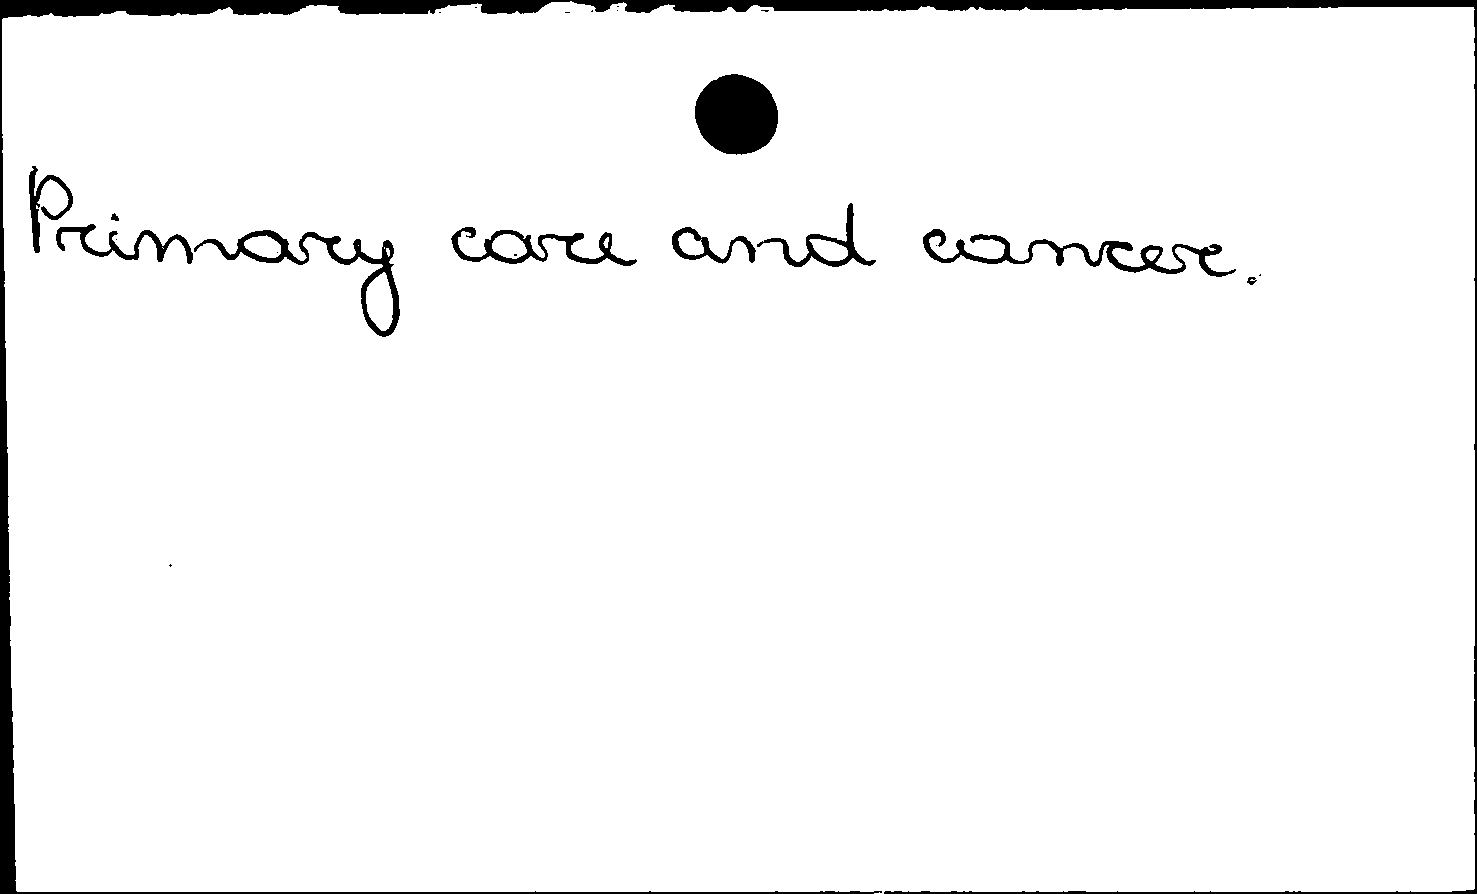 Primary care and cancer.